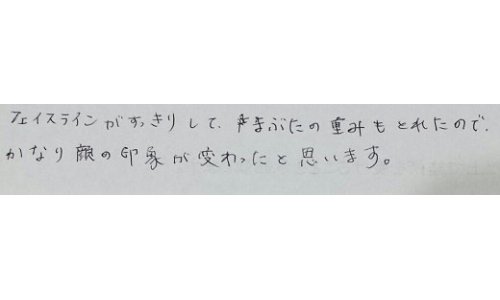 フェイスラインがすっきりして、まぶたの重みもとれたので、
かなり顔の印象が変わったと思います。